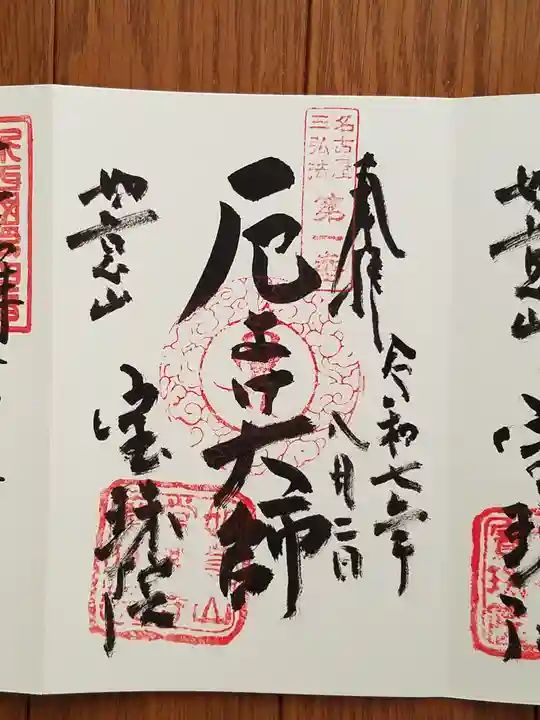 奉拝
令和七年
八月二日
名古屋
三弘法
第一番
厄よけ大師
如意山
宝珠院
如意山
宝珠院